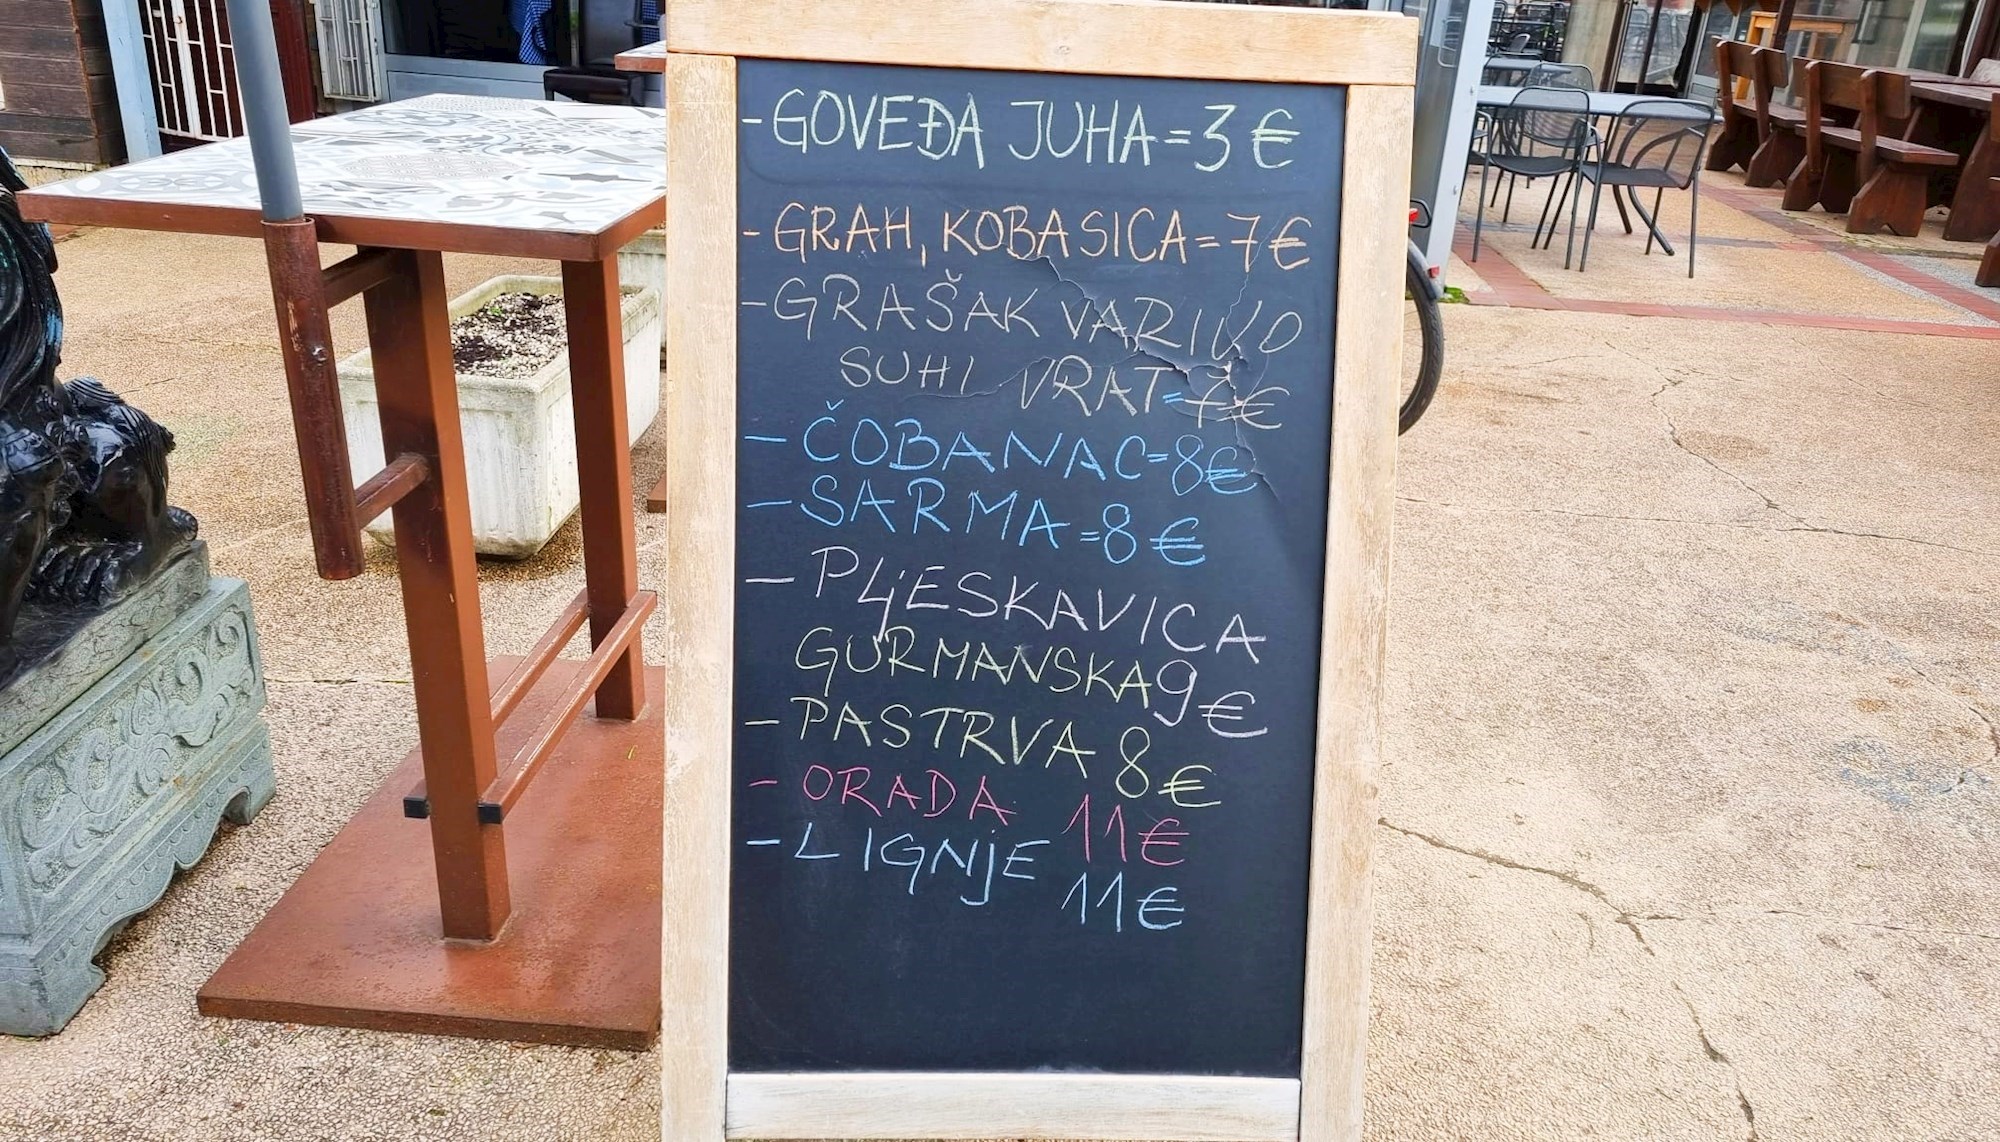 - GOVEĐA JUHA = 3 €
- GRAH, KOBASICA = 7 €
- GRAŠAK VARIVO
SUHI VRAT = 7 €
- ČOBANAC = 8 €
- SARMA = 8 €
- PLjESKAVICA
GURMANSKA 9 €
- PASTRVA 8 €
- ORADA 11 €
- LIGNjE 11 €